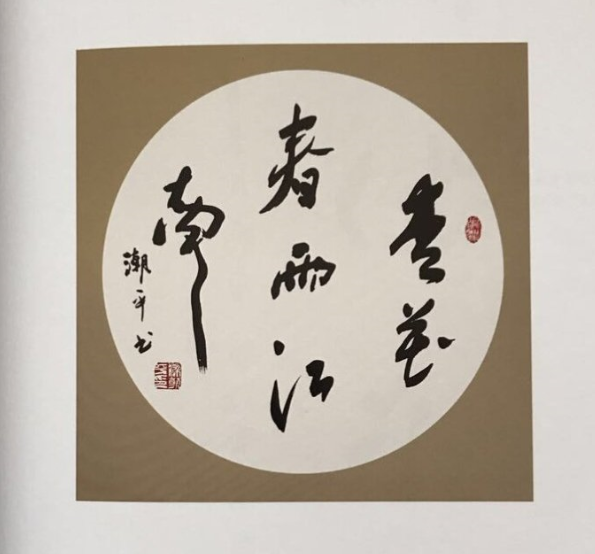 杏花
春雨江
南
潮平书